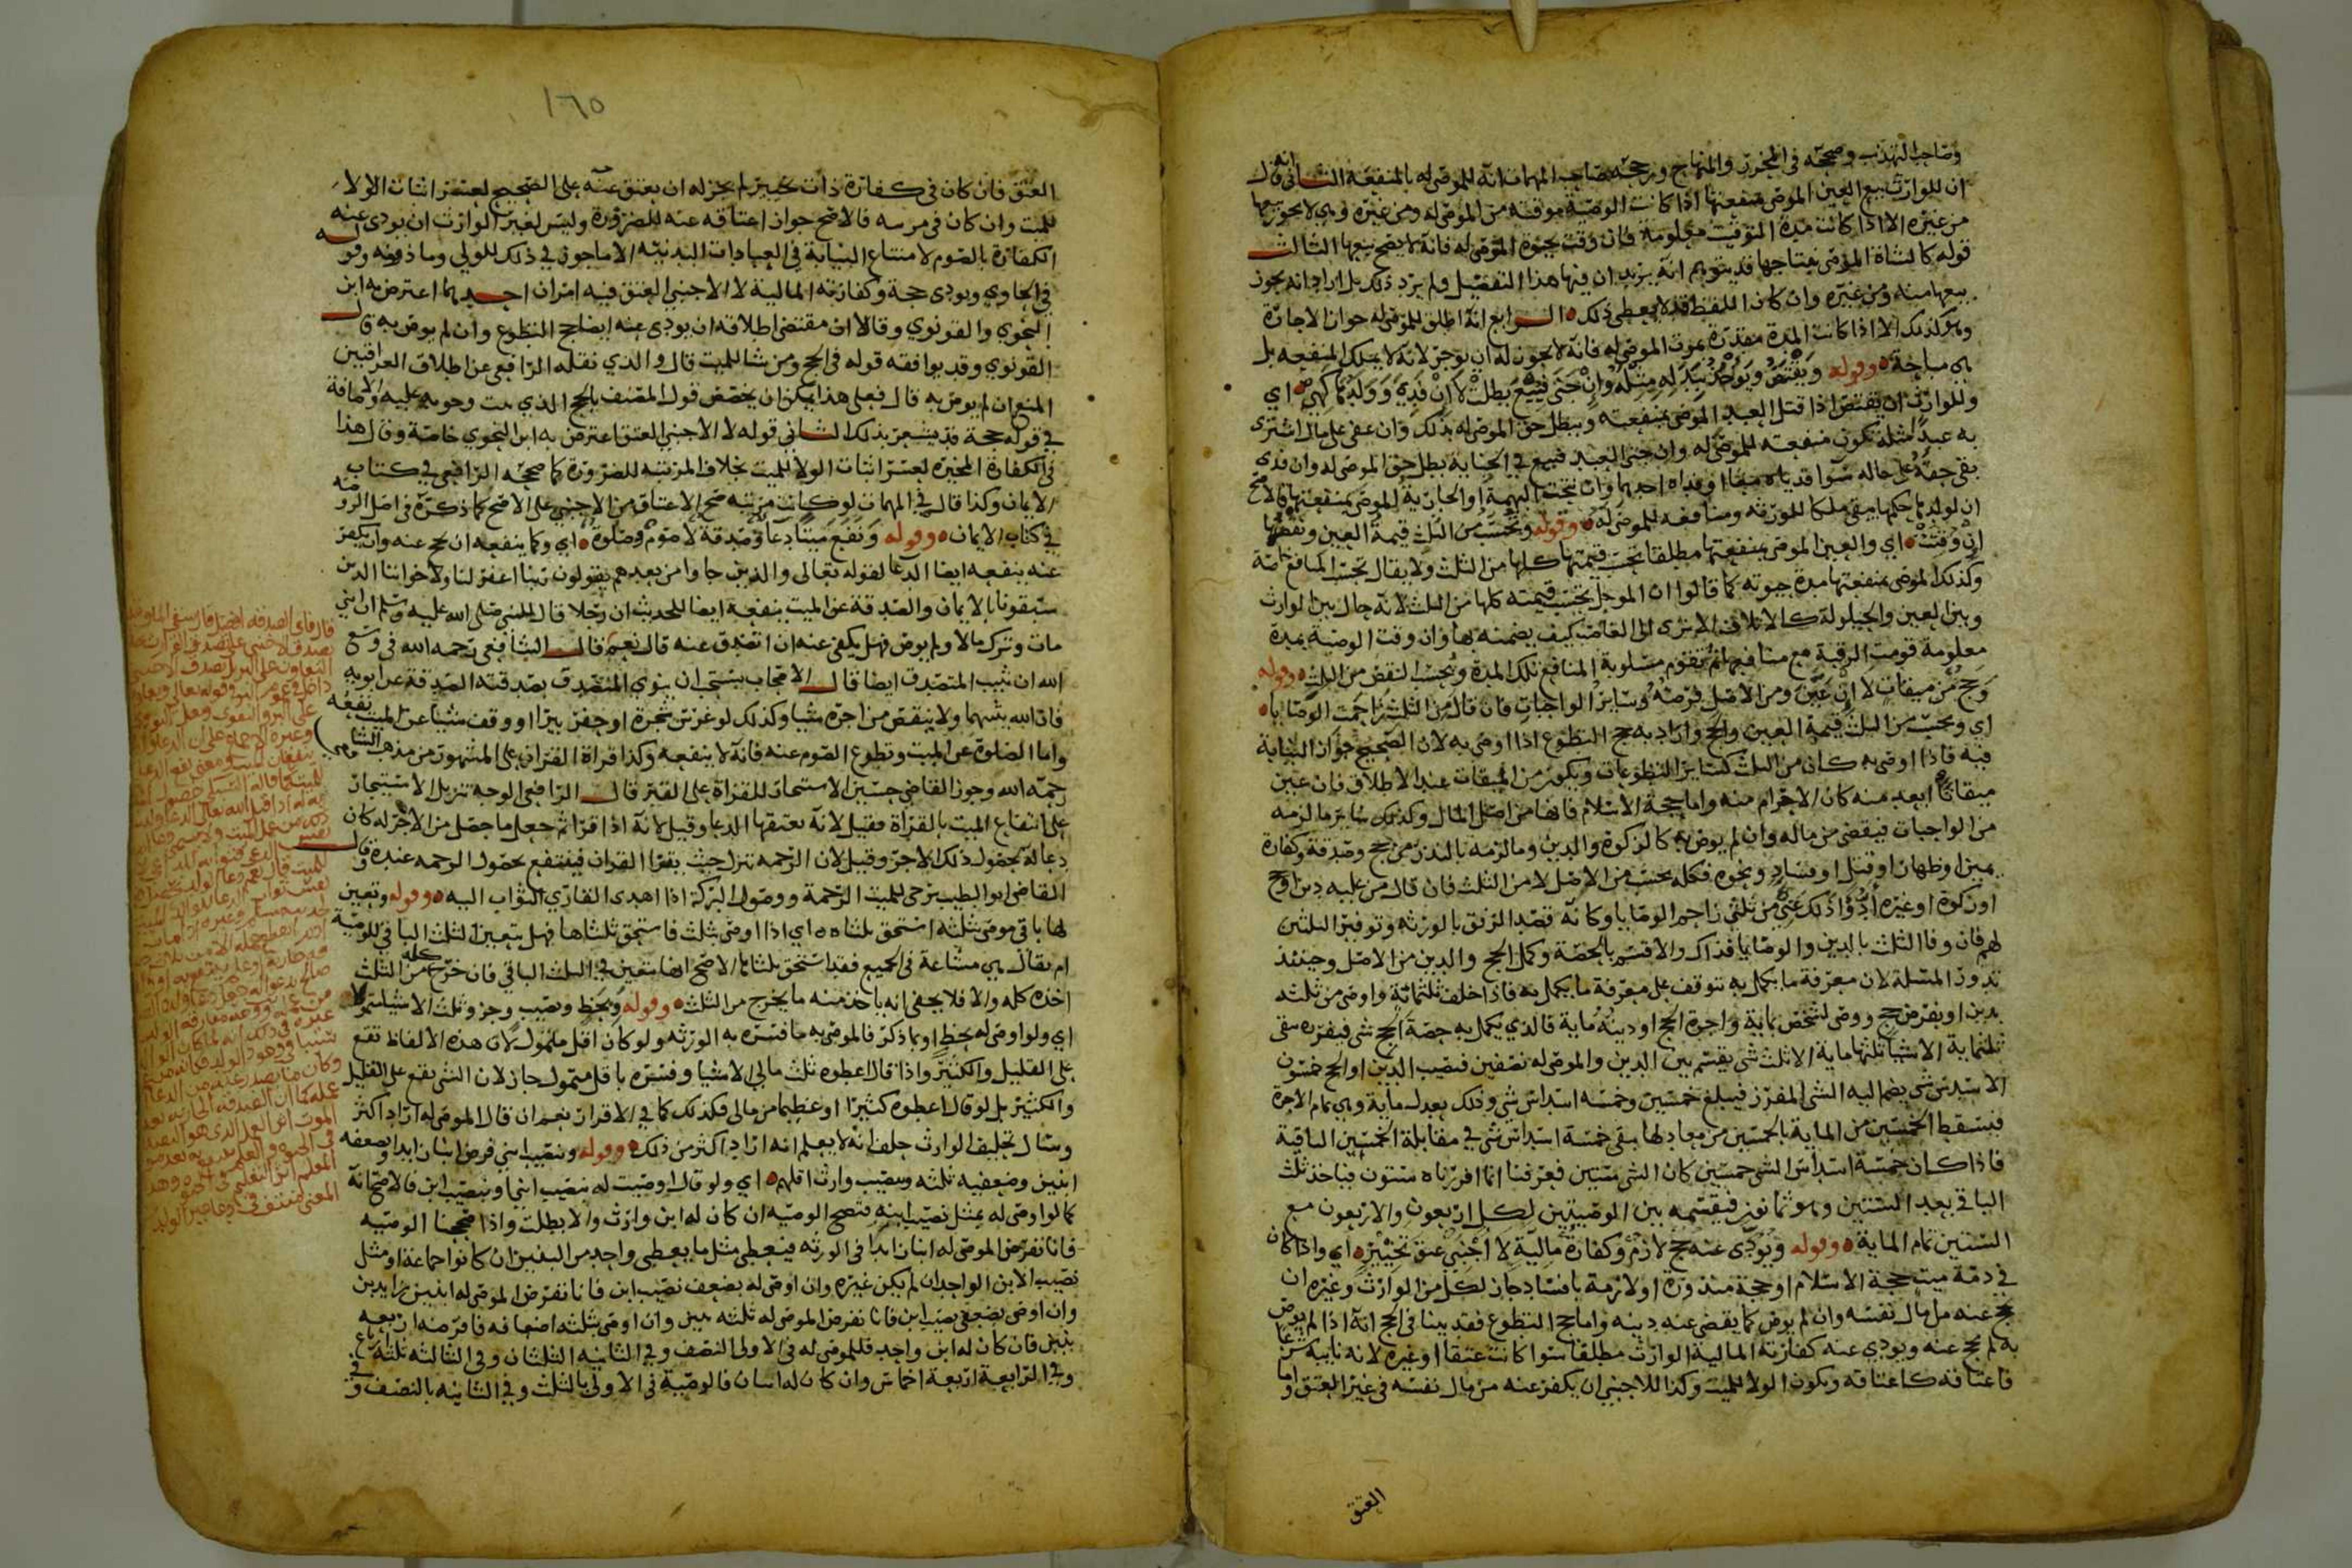 وصاحب التهذيب وصححه في المحرر والمنهاج ورجحه صاحب المهمات انه للموصى له بالمنفعة الثاني انه قال
ان للوارث بيع العين الموصى بمنفعتها اذا كانت الوصية موقتة من الموصى له ومن غيره وهي لا يجوز بيعها
من غيره الا اذا كانت مدة التوقيت معلومة فان وقت بحيوة الموصى له فانه لا يصح بيعها الثالث
قوله كالشاة الموصى بنتاجها قد يتوهم انه يريد ان فيها هذا التفصيل ولم يرد ذلك بل اراد انه يجوز
بيعها منه ومن غيره وان كان اللفظ قد لا يعطي ذلك الرابع انه اطلق للموصى له جواز الاجارة
وهو كذلك الا اذا كانت المدة مقدرة بموت الموصى له فانه لا يجوز له ان يوجر لانه لا يملك المنفعه بل
هي مباحة وقوله ويقتص ويوخذ ببدله مثله وان جنى فبيع بطلت لا ان فدي وولدها كهي اي
وللوارث ان يقتص اذا قتل العبد الموصى بمنفعته ويبطل حق الموصى له بذلك وان عفى على مال اشترى
به عبدا مثله تكون منفعته للموصى له وان جنى العبد فبيع في الجناية بطل حق الموصى له وان فدى
بقي حقه على حاله سوا فدياه معا او فداه احدهما وان نتجت البهيمة او الجارية الموصى بمنفعتها فالاصح
ان لولدها حكمها يبقى ملكا للورثه ومنافعه للموصى له وقوله وتحسب من الثلث قيمة العين ونقصها
ان وقتت اي والعين الموصى بمنفعتها مطلقا تحسب قيمتها كلها من الثلث ولا يقال تحسب المنافع خاصة
وكذلك الموصى بمنفعتها مدة حيوته كما قالوا ان الموجل تحسب قيمته كلها من الثلث لانه حال بين الوارث
وبين العين والحيلولة كالاتلاف الا ترى الى الغاصب كيف يضمنه بها وان وقت الوصية بمدة
معلومة قومت الرقبة مع منافعها ثم تقوم مسلوبة المنافع تلك المدة وتحسب النقص من الثلث وقوله
وحج من ميقات لا ان عين ومن الاصل فرضه وساير الواجبات فان قال من الثلث زاحمت الوصايا
اي وتحسب من الثلث قيمة العين والحج واراد به حج التطوع اذا اوصى به لان الصحيح جواز النيابة
فيه فاذا اوصى به كان من الثلث كساير التطوعات ويكون من الميقات عند الاطلاق فان عين
ميقاتا ابعد منه كان الاحرام منه واما حجة الاسلام فانها من اصل المال وكذلك ساير ما لزمه
من الواجبات فيقضى من ماله وان لم يوص به كالزكوة والدين وما لزمه بالنذر من حج وصدقة وكفارة
يمين او ظهار او قتل او فساد ونحوه فكله يحسب من الاصل لا من الثلث فان قال من عليه دين او حج
او زكوة او غيره ادوا ذلك عني من ثلثي زاحم الوصايا وكانه قصد الرفق بالورثه وتوفير الثلثين
لهم فان وفا الثلث بالدين والوصايا فذاك والا قسم بالحصة وكمل الحج والدين من الاصل وحينئذ
تدور المسئلة لان معرفة ما يكمل به تتوقف على معرفة ما يكمل به فاذا خلف ثلثماية واوصى من ثلثه
بدين او بفرض حج ووصى لشخص بماية واجرة الحج او دينه ماية فالذي يكمل به حصة الحج شي فيفرز يبقى
ثلثماية الا شيا ثلثها ماية الا ثلث شي يقسم بين الدين والموصى له نصفين فنصيب الدين او الحج خمسون
الا سدس شي يضم اليه الشي المفرز فيبلغ خمسين وخمسة اسداس شي وذلك يعدل ماية وهي تمام الاجرة
فيسقط الخمسين من الماية بالخمسين من معادلها يبقى خمسة اسداس شي في مقابلة الخمسين الباقية
فاذا كان خمسة اسداس الشي خمسين كان الشي ستين فعرفنا انما افرزناه ستون فياخذ ثلث
الباقي بعد الستين وهو ثمانون فيقسمه بين الوصيتين لكل اربعون والاربعون مع
الستين تمام الماية وقوله ويودى عنه حج لازم وكفارة مالية لا اجنبي عتق تخيير اي واذا كان
في ذمة ميت حجة الاسلام او حجة منذورة او لازمة بافساد جاز لكل من الوارث وغيره ان
يحج عنه من مال نفسه وان لم يوص كما يقضى عنه دينه واما حج التطوع فقد بينا في الحج انه اذا لم يوص
به لم يحج عنه ويودي عنه كفارته المالية الوارث مطلقا سوا كانت عتقا او غيره لانه نايبه شرعا
فاعتاقه كاعتاقه ويكون الولا للميت وكذا للاجنبي ان يكفر عنه من مال نفسه في غير العتق واما
العتق
١٦٥
العتق فان كان في كفارة ذات تخيير لم يجز له ان يعتق عنه على الصحيح لعسر اثبات الولا
للميت وان كان في مرتبه فالاصح جواز اعتاقه عنه للضرورة وليس لغير الوارث ان يودى عنه
الكفارة بالصوم لامتناع النيابة في العبادات البدنيه الا ما جوز في ذلك للولي وماذونه وقوله
في الحاوي ويودى حجة وكفارته المالية لا الاجنبي العتق فيه امران احدهما اعترض به ابن
النحوي والقونوي وقالا ان مقتضى اطلاقه ان يودى عنه ايضا حج التطوع وان لم يوص به قال
القونوي وقد يوافقه قوله في الحج ومن شا للميت قال والذي نقله الرافعي عن اطلاق العراقيين
المنع ان لم يوص به قال فعلى هذا يمكن ان يخصص قول المصنف بالحج الذي ثبت وجوبه عليه والاضافة
في قوله حجة قد يشعر بذلك الثاني قوله لا الاجنبي العتق اعترض به ابن النحوي خاصة وقال هذا
في الكفارة المخيرة لعسر اثبات الولا للميت بخلاف المرتبه للضرورة كما صححه الرافعي في كتاب
الايمان وكذا قال في المهمات لو كانت مرتبه صح الاعتاق من الاجنبي على الاصح كما ذكره في اصل الروضه
في كتاب الايمان وقوله ونفع ميتا دعا وصدقة لا صوم وصلوة اي وكما ينفعه ان يحج عنه وان يكفر
عنه ينفعه ايضا الدعا لقوله تعالى والذين جاوا من بعدهم يقولون ربنا اغفر لنا ولاخواننا الذين
سبقونا بالايمان والصدقة عن الميت تنفعه ايضا للحديث ان رجلا قال للنبي صلى الله عليه وسلم ان ابي
مات وترك مالا ولم يوص فهل يكفي عنه ان اتصدق عنه قال نعم قال الشافعي رحمه الله في وسع
الله ان يثيب المتصدق ايضا قال الاصحاب يستحب ان ينوي المتصدق بصدقته الصدقة عن ابويه
فان الله يثيبهما ولا ينقص من اجره شيا وكذلك لو غرس شجرة او حفر بيرا او وقف شيا عن الميت نفعه
واما الصلوة عن الميت وتطوع الصوم عنه فانه لا ينفعه وكذا قراة القران على المشهور من مذهب الشافعي
رحمه الله وجوز القاضي حسين الاستيجار للقراة على القبر قال الرافعي الوجه تنزيل الاستيجار
على انتفاع الميت بالقراة فقيل لانه يعقبها الدعا وقيل لانه اذا قرا ثم جعل ما حصل من الاجر له كان
دعا له بحصول ذلك الاجر وقيل لان الرحمه تنزل حيث يقرا القران فينتفع بحصول الرحمه عنده وقال
القاضي ابو الطيب يرجى للميت الرحمة ووصول البركة اذا اهدى القاري الثواب اليه وقوله وتعين
لها باقي موصى بثلثه استحق ثلثاه اي اذا اوصى بثلث فاستحق ثلثاها فهل يتعين الثلث الباقي للوصية
ام يقال هي مشاعة في الجميع فقد استحق ثلثاها الاصح انها يتعين في الثلث الباقي فان خرج كله من الثلث
اخذه كله والا فلا يخفى انه ياخذ منه ما يخرج من الثلث وقوله وبحظ ونصيب وجزو ثلث الا شيا متمول
اي ولو اوصى له بحظ او بما ذكر فالموصى به ما فسره به الورثه ولو كان اقل متمول لان هذه الالفاظ تقع
على القليل والكثير واذا قال اعطوه ثلث مالي الا شيا وفسره باقل متمول جاز لان الشي يقع على القليل
والكثير بل لو قال اعطوه كثيرا او عظيما من مالي فكذلك كما في الاقرار نعم ان قال الموصى له اراد اكثر
وسال تحليف الوارث حلف انه لا يعلم انه اراد اكثر من ذلك وقوله وبنصيب ابني فرض ابنان ابدا وبضعفه
ابنين وضعفيه ثلثه وبنصيب وارث اقلهم اي ولو قال اوصيت له بنصيب ابني او بنصيب ابن فالاصح انه
كما لو اوصى له بمثل نصيب ابنه فتصح الوصيه ان كان له ابن وارث والا بطلت واذا صححنا الوصيه
فانا نفرض الموصى له ابنا زايدا في الورثه فيعطى مثل ما يعطى واحد من البنين ان كانوا جماعة او مثل
نصيب الابن الواحد ان لم يكن غيره وان اوصى له بضعف نصيب ابن فانا نفرض الموصى له ابنين زايدين
وان اوصى بضعفي نصيب ابن فانا نفرض الموصى له ثلثه بنين وان اوصى بثلثه اضعافه فافرضه اربعه
بنين فان كان له ابن واحد فللموصى له في الاولى النصف وفي الثانيه الثلثان وفي الثالثه ثلثه ارباع
وفي الرابعة اربعة اخماس وان كان له ابنان فالوصية في الاولى بالثلث وفي الثانيه بالنصف وفي